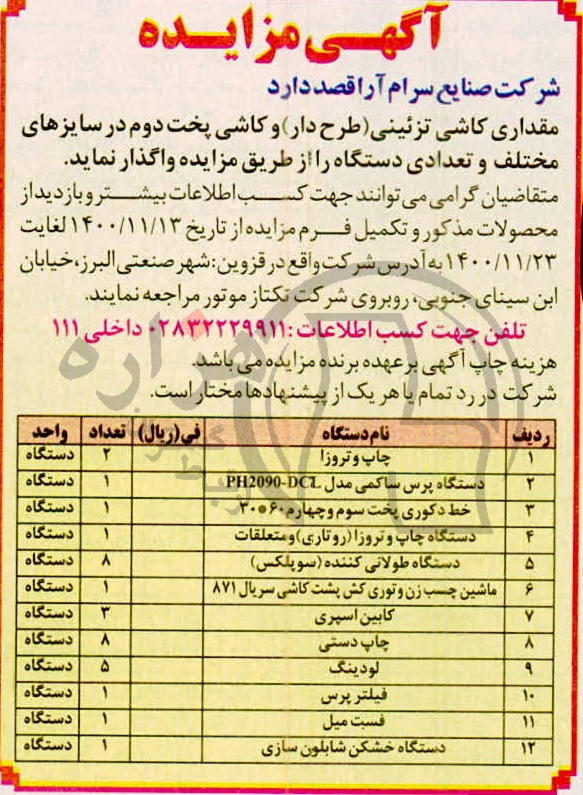 آگهی مزایده
شرکت صنایع سرام آرا قصد دارد
مقداری کاشی تزئینی(طرح دار)و کاشی پخت دوم در سایزهای
مختلف و تعدادی دستگاه را از طریق مزایده واگذار نماید.
متقاضیان گرامی می توانند جهت کسب اطلاعات بیشتر و بازدید از
محصولات مذکور و تکمیل فرم مزایده از تاریخ ۱۴۰۰/۱۱/۱۳ لغایت
۱۴۰۰/۱۱/۲۳ به آدرس شرکت واقع در قزوین:شهر صنعتی البرز،خیابان
ابن سینای جنوبی، روبروی شرکت تکتاز موتور مراجعه نمایند.
تلفن جهت کسب اطلاعات :۰۲۸۳۲۲۲۹۹۱۱ داخلی ۱۱۱
هزینه چاپ آگهی بر عهده برنده مزایده می باشد.
شرکت در رد تمام یا هر یک از پیشنهادها مختار است.
ردیف نام دستگاه فی(ریال) تعداد واحد
۱ چاپ وتروزا ۲ دستگاه
۲ دستگاه پرس ساکمی مدل PH2090-DCL ۱ دستگاه
۳ خط دکوری پخت سوم و چهارم ۶۰*۳۰ ۱ دستگاه
۴ دستگاه چاپ وتروزا (روتاری)و متعلقات ۱ دستگاه
۵ دستگاه طولانی کننده (سوپلکس) ۸ دستگاه
۶ ماشین چسب زن و توری کش پشت کاشی سریال ۸۷۱ ۱ دستگاه
۷ کابین اسپری ۳ دستگاه
۸ چاپ دستی ۸ دستگاه
۹ لودینگ ۵ دستگاه
۱۰ فیلتر پرس ۱ دستگاه
۱۱ فست میل ۱ دستگاه
۱۲ دستگاه خشکن شابلون سازی ۱ دستگاه
هزاره